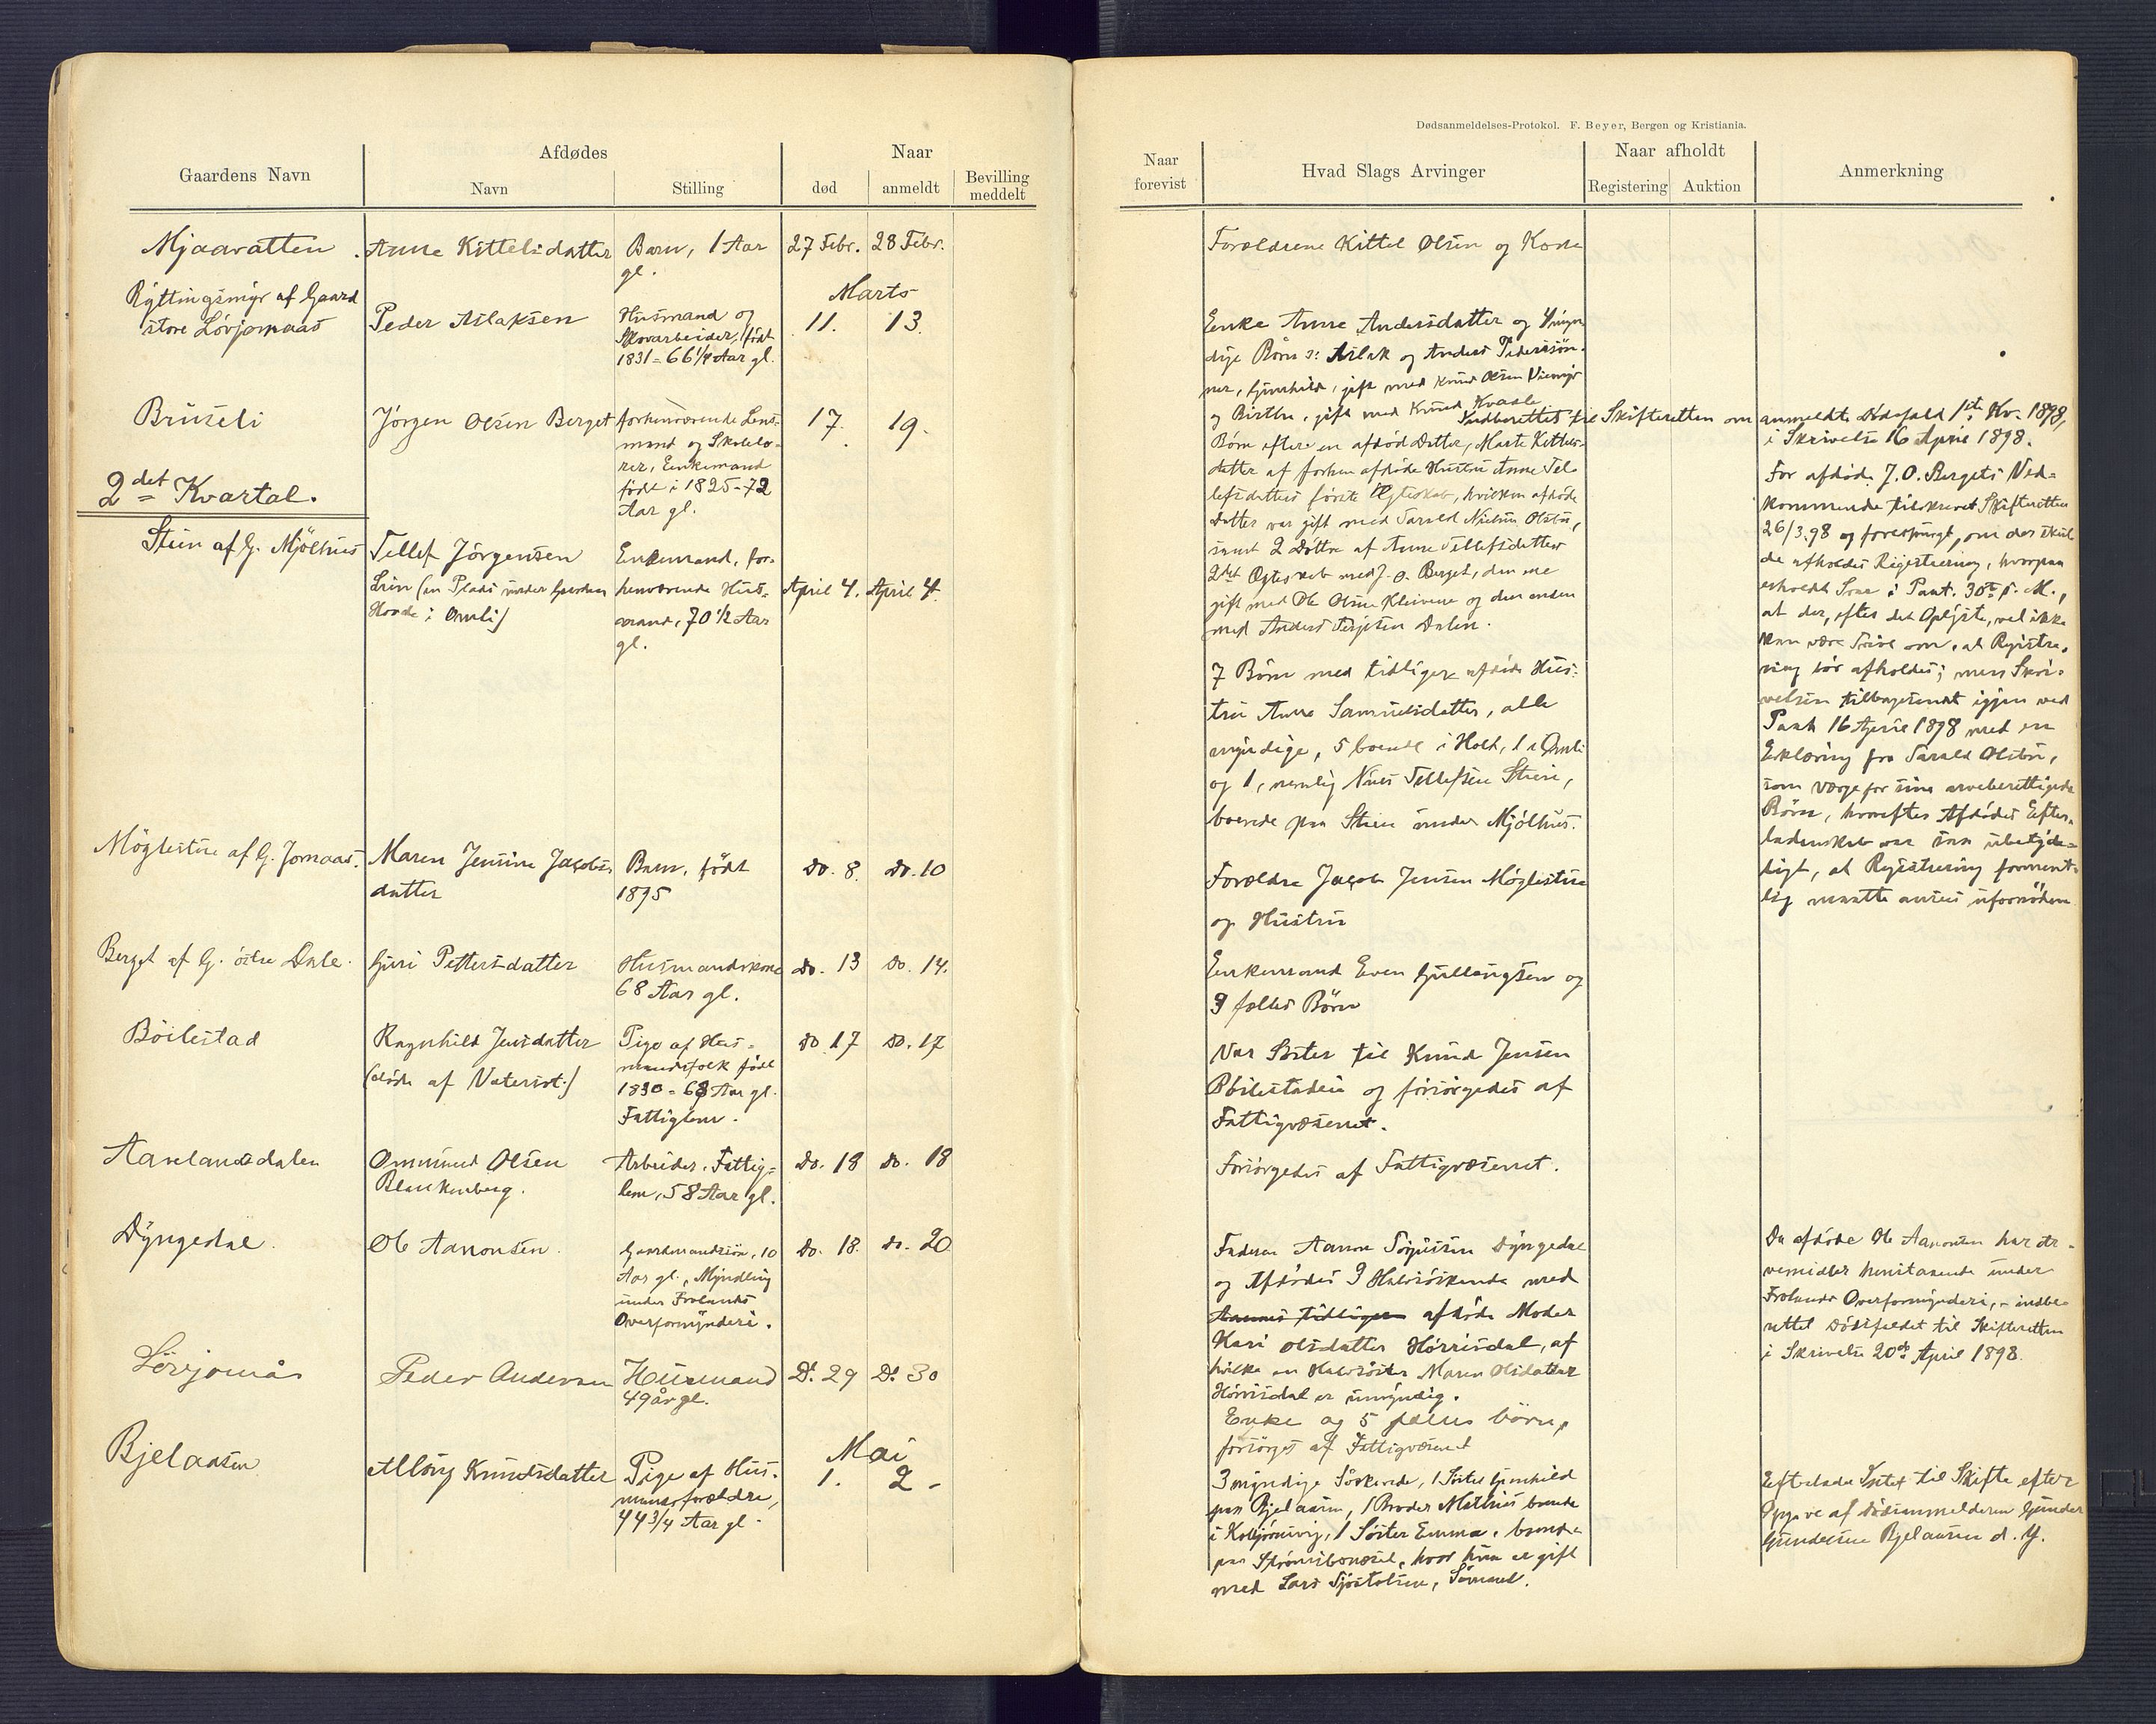 Dødsanmeldelses-Protokol. F. Beyer, Bergen og Kristiania.
Gaardens Navn
Afdødes
Navn
Stilling
Naar
død
anmeldt
Bevilling
meddelt
Naar
forevist
Hvad Slags Arvinger
Naar afholdt
Registering
Auktion
Anmerkning
Mjaavatten
Anne Kittelsdatter
Barn, 1 Aar
gl.
27 Febr.
28 Febr.
Forældrene Kittel Olsen og Kone
Ryttingsmyr af Gaard
store Lövjomaas
Peder Aslaksen
Husmand og
Skovarbeider, født
1831 = 66 1/4 Aar gl.
Marts
11.
13.
Enke Anne Andersdatter og 4 myn
dige Börn: Aslak og Anders Pederssön-
ner, Gunhild, gift med Knud Olsen
og Birthe, gift med Knud
Bruseli
Jörgen Olsen Berget
forhenværende Lens-
mand og Skolelæ-
rer, Enkemand
födt i 1825 - 72
Aar gl.
17.
19.
Indberettet til Skifteretten om anmeldte Dödsfald 1ste Kv. 1898,
i Skrivelse 16 April 1898.
Börn efter en afdöd Datter, Marte Kittels-
datter af forhen afdöde Hustru Anne Tel-
lefsdatters förste Ægteskab, hvilken afdöde
Datter var gift med Tarald Nielsen Olsbu,
samt 2 Döttre af Anne Tellefsdatters
2det Ægteskab med J. O. Berget, den ene
gift med Ole Olsen Kleivene og den anden
med Anders Terjesen Dalen.
For afdöde J. O. Bergets Ved-
kommende tilskrevet Skifteretten
26/3.98 og forespurgt, om der skul
de afholdes Registrering, hvorpaa
erholdt Svar i Paat. 30te s. M.,
at der, efter det Oplyste, vel ikke
kan være Tvivl om, at Registre-
ring bör afholdes; men Skri-
velsen tilbagesendt igjen med
Paat. 16 April 1898 med en
Erklæring fra Tarald Olsbu,
som Værge for sine arveberettigede
Börn, hvorefter Afdödes Efter-
ladenskab var saa ubetyde-
ligt, at Registrering forment-
lig maatte ansees ufornöden
2det Kvartal.
Stien af G. Mjölhus
Tellef Jörgensen
Lien (en Plads under Gaarden
Hovde i Omli)
Enkemand, for-
henværende Hus-
mand, 70 1/2 Aar
gl.
April 4.
April 4.
7 Börn med tidligere afdöde Hus-
tru Anne Samuelsdatter, alle
myndige, 5 boende i Holt, 1 i Omli
og 1, nemlig Niels Tellefsen Stien,
boende paa Stien under Mjölhus.
Möglestue af G. Jomaas.
Maren Jensine Jacobs-
datter
Barn, födt
1895
Do. 8.
Do. 10
Forældre Jacob Jensen Möglestue
og Hustru
Berget af G. östre Dale.
Guri Pettersdatter
Husmandskone
68 Aar gl.
Do. 13
Do. 14.
Enkemand Even Gullaugsen og
9 fælles Börn
Böilestad
Ragnhild Jensdatter
(döde af Vatersot.)
Pige af Hus-
mandsfolk födt
1830 = 68 Aar gl.
Fattiglem.
Do. 17
Do. 17
Var Söster til Knud Jensen
Böilestadeie og forsörgedes af
Fattigvæsenet.
Aavelandsdalen
Ommund Olsen
Blankenberg.
Arbeider. Fattig-
lem, 58 Aar gl.
Do. 18
Do. 18
Forsörgedes af Fattigvæsenet.
Dyngedal
Ole Aanonsen.
Gaardmandssön, 10
Aar gl., Myndling
under Frolands
Overformynderi.
Do. 18.
Do. 20
Faderen Aanon Torjussen Dyngedal
og Afdödes 9 Halvsöskende med
tidligere afdöde Moder
Kari Olsdatter Hörrisdal, af
hvilke en Halvsöster Maren Olsdatter
Hörrisdal er umyndig.
Da afdöde Ole Aanonsen har ar-
vemidler henstaaende under
Frolands Overformynderi, - indbe-
rettet Dödsfaldet til Skifteretten
i Skrivelse 20de April 1898.
Lövjomås
Peder Andersen
Husmand
49 år gl.
Do. 29
Do. 30
Enke og 5 fælles börn,
forsörges af Fattigvæsenet
Bjelaasen
Alborg Knudsdatter
Pige af Hus-
mandsforældre,
44 3/4 Aar gl.
Mai
1.
2 -
3 myndige Söskende, 1 Söster Gunhild
paa Bjelaasen, 1 Broder Mathias boende
i Kolbjörnsvig, 1 Söster Emma, boende
paa Strömsbonæset, hvor hun er gift
med Lars Sjöstolsen, Sömand.
Efterlader Intet til Skifte efter
Opgave af Dödsanmelderen Gunder
Gundersen Bjelaasen d. Y.